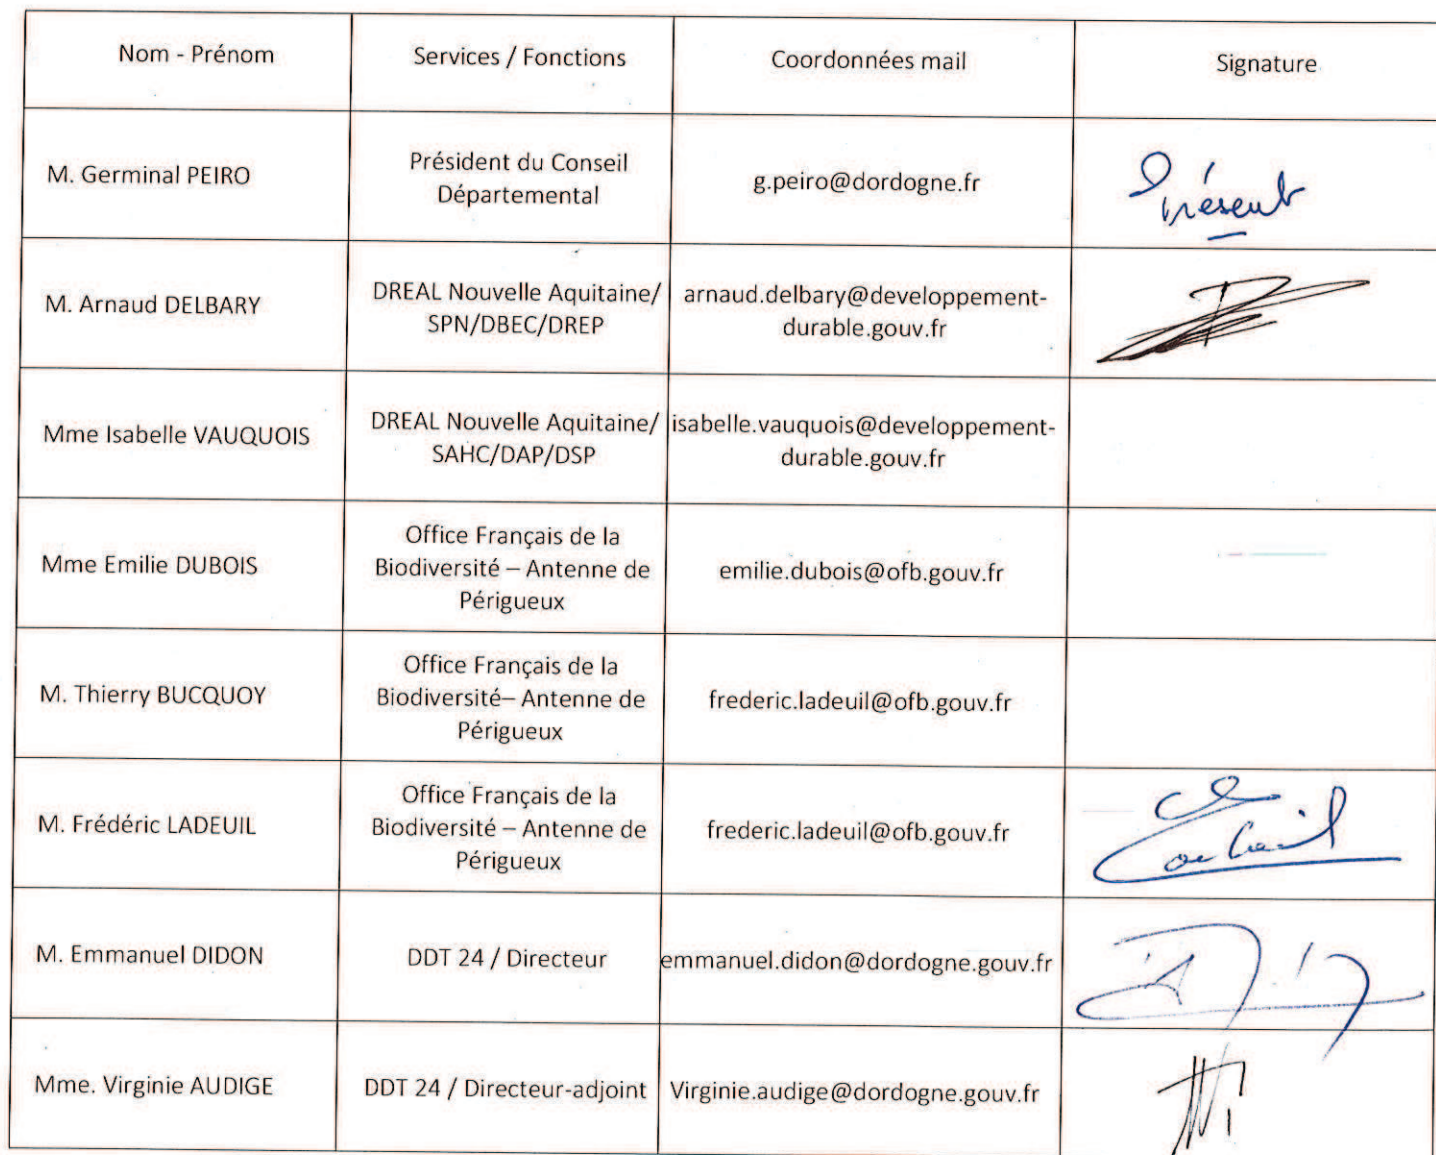 Nom - Prénom
Services / Fonctions
Coordonnées mail
Signature
M. Germinal PEIRO
Président du Conseil
Départemental
g.peiro@dordogne.fr
Présent
M. Arnaud DELBARY
DREAL Nouvelle Aquitaine/
SPN/DBEC/DREP
arnaud.delbary@developpement-
durable.gouv.fr
Mme Isabelle VAUQUOIS
DREAL Nouvelle Aquitaine/
SAHC/DAP/DSP
isabelle.vauquois@developpement-
durable.gouv.fr
Mme Emilie DUBOIS
Office Français de la
Biodiversité – Antenne de
Périgueux
emilie.dubois@ofb.gouv.fr
M. Thierry BUCQUOY
Office Français de la
Biodiversité– Antenne de
Périgueux
frederic.ladeuil@ofb.gouv.fr
M. Frédéric LADEUIL
Office Français de la
Biodiversité – Antenne de
Périgueux
frederic.ladeuil@ofb.gouv.fr
M. Emmanuel DIDON
DDT 24 / Directeur
emmanuel.didon@dordogne.gouv.fr
Mme. Virginie AUDIGE
DDT 24 / Directeur-adjoint
Virginie.audige@dordogne.gouv.fr